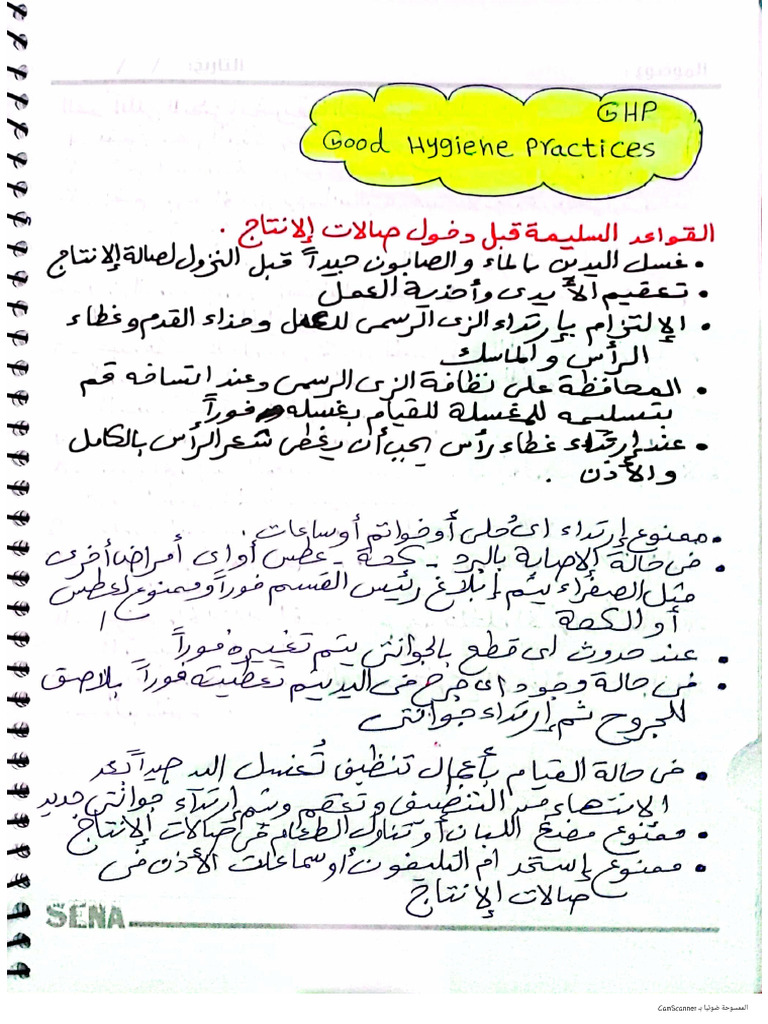 الموضوع: التاريخ: / /
GHP
Good Hygiene Practices
القواعد السليمة قبل دخول صالات الإنتاج .
• غسل اليدين بالماء والصابون جيداً قبل النزول لصالة الإنتاج
• تعقيم الأيدى وأحذية العمل
• الإلتزام بإرتداء الزى الرسمى للعمل وحذاء القدم وغطاء
الرأس والماسك
• المحافظة على نظافة الزى الرسمى وعند اتساخه قم
بتسليمه للمغسلة للقيام بغسله فوراً
• عند إرتداء غطاء رأس يجب أن يغطى شعر الرأس بالكامل
والأذن .
• ممنوع إرتداء اى حُلى أو خواتم أو ساعات .
• فى حالة الإصابة بالبرد - كحة - عطس أو اى أمراض أخرى
مثل الصفراء يتم إبلاغ رئيس القسم فوراً وممنوع العطس
أو الكحة
• عند حدوث اى قطع بالجوانتى يتم تغييره فوراً
• فى حالة وجود اى جرح فى اليد يتم تغطيته فوراً بلاصق
للجروح ثم إرتداء جوانتى
• فى حالة القيام بأعمال تنظيف تُغسل اليد جيداً بعد
الانتهاء من التنظيف وتعقم وثم إرتداء جوانتى جديد
• ممنوع مضغ اللبان أو تناول الطعام فى صالات الإنتاج
• ممنوع إستخدام التليفون أو سماعات الأذن فى
صالات الإنتاج
SENA
الممسوحة ضوئيا بـ CamScanner